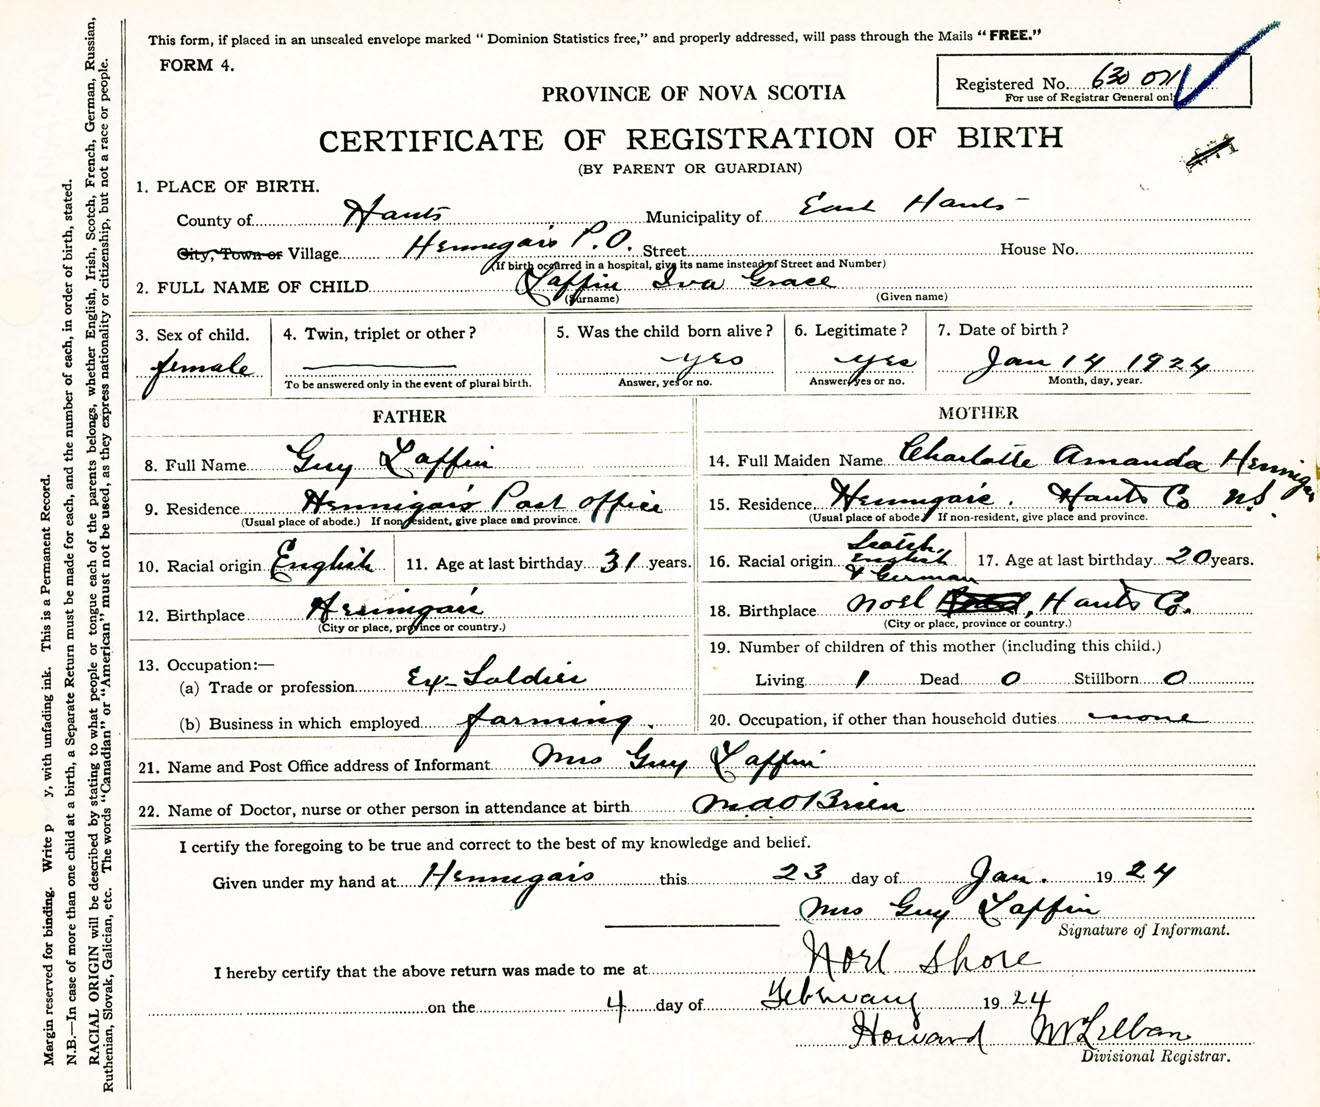 This form, if placed in an unsealed envelope marked " Dominion Statistics free," and properly addressed, will pass through the Mails "FREE."
FORM 4.
Registered No. 630 071
For use of Registrar General only
PROVINCE OF NOVA SCOTIA
CERTIFICATE OF REGISTRATION OF BIRTH
(BY PARENT OR GUARDIAN)
1. PLACE OF BIRTH.
County of Hants Municipality of East Hants
City, Town or Village Hennigar's P.O. Street House No.
(If birth occurred in a hospital, give its name instead of Street and Number)
2. FULL NAME OF CHILD Laffin Iva Grace
(Surname) (Given name)
3. Sex of child. 4. Twin, triplet or other? 5. Was the child born alive? 6. Legitimate? 7. Date of birth?
female yes yes Jan 14 1924
To be answered only in the event of plural birth. Answer, yes or no. Answer, yes or no. Month, day, year.
FATHER MOTHER
8. Full Name Guy Laffin 14. Full Maiden Name Charlotte Amanda Hennigar
9. Residence Hennigar's Post office 15. Residence Hennigar's. Hants Co N.S.
(Usual place of abode.) If non-resident, give place and province. (Usual place of abode. If non-resident, give place and province.
10. Racial origin English 11. Age at last birthday 31 years. 16. Racial origin Scotch, English & German 17. Age at last birthday 20 years.
12. Birthplace Hennigar's 18. Birthplace Noel , Hants Co.
(City or place, province or country.) (City or place, province or country.)
13. Occupation:— 19. Number of children of this mother (including this child.)
(a) Trade or profession Ex-Soldier Living 1 Dead 0 Stillborn 0
(b) Business in which employed farming. 20. Occupation, if other than household duties none
21. Name and Post Office address of Informant Mrs Guy Laffin
22. Name of Doctor, nurse or other person in attendance at birth O'Brien
I certify the foregoing to be true and correct to the best of my knowledge and belief.
Given under my hand at Hennigar's this 23 day of Jan. 1924
Mrs Guy Laffin
Signature of Informant.
I hereby certify that the above return was made to me at Noel Shore
on the 4 day of February 1924
Howard McLellan
Divisional Registrar.
Margin reserved for binding. Write p y, with unfading ink. This is a Permanent Record.
N.B.—In case of more than one child at a birth, a Separate Return must be made for each, and the number of each, in order of birth, stated.
RACIAL ORIGIN will be described by stating to what people or tongue each of the parents belongs, whether English, Irish, Scotch, French, German, Russian,
Ruthenian, Slovak, Galician, etc. The words "Canadian" or "American" must not be used, as they express nationality or citizenship, but not a race or people.